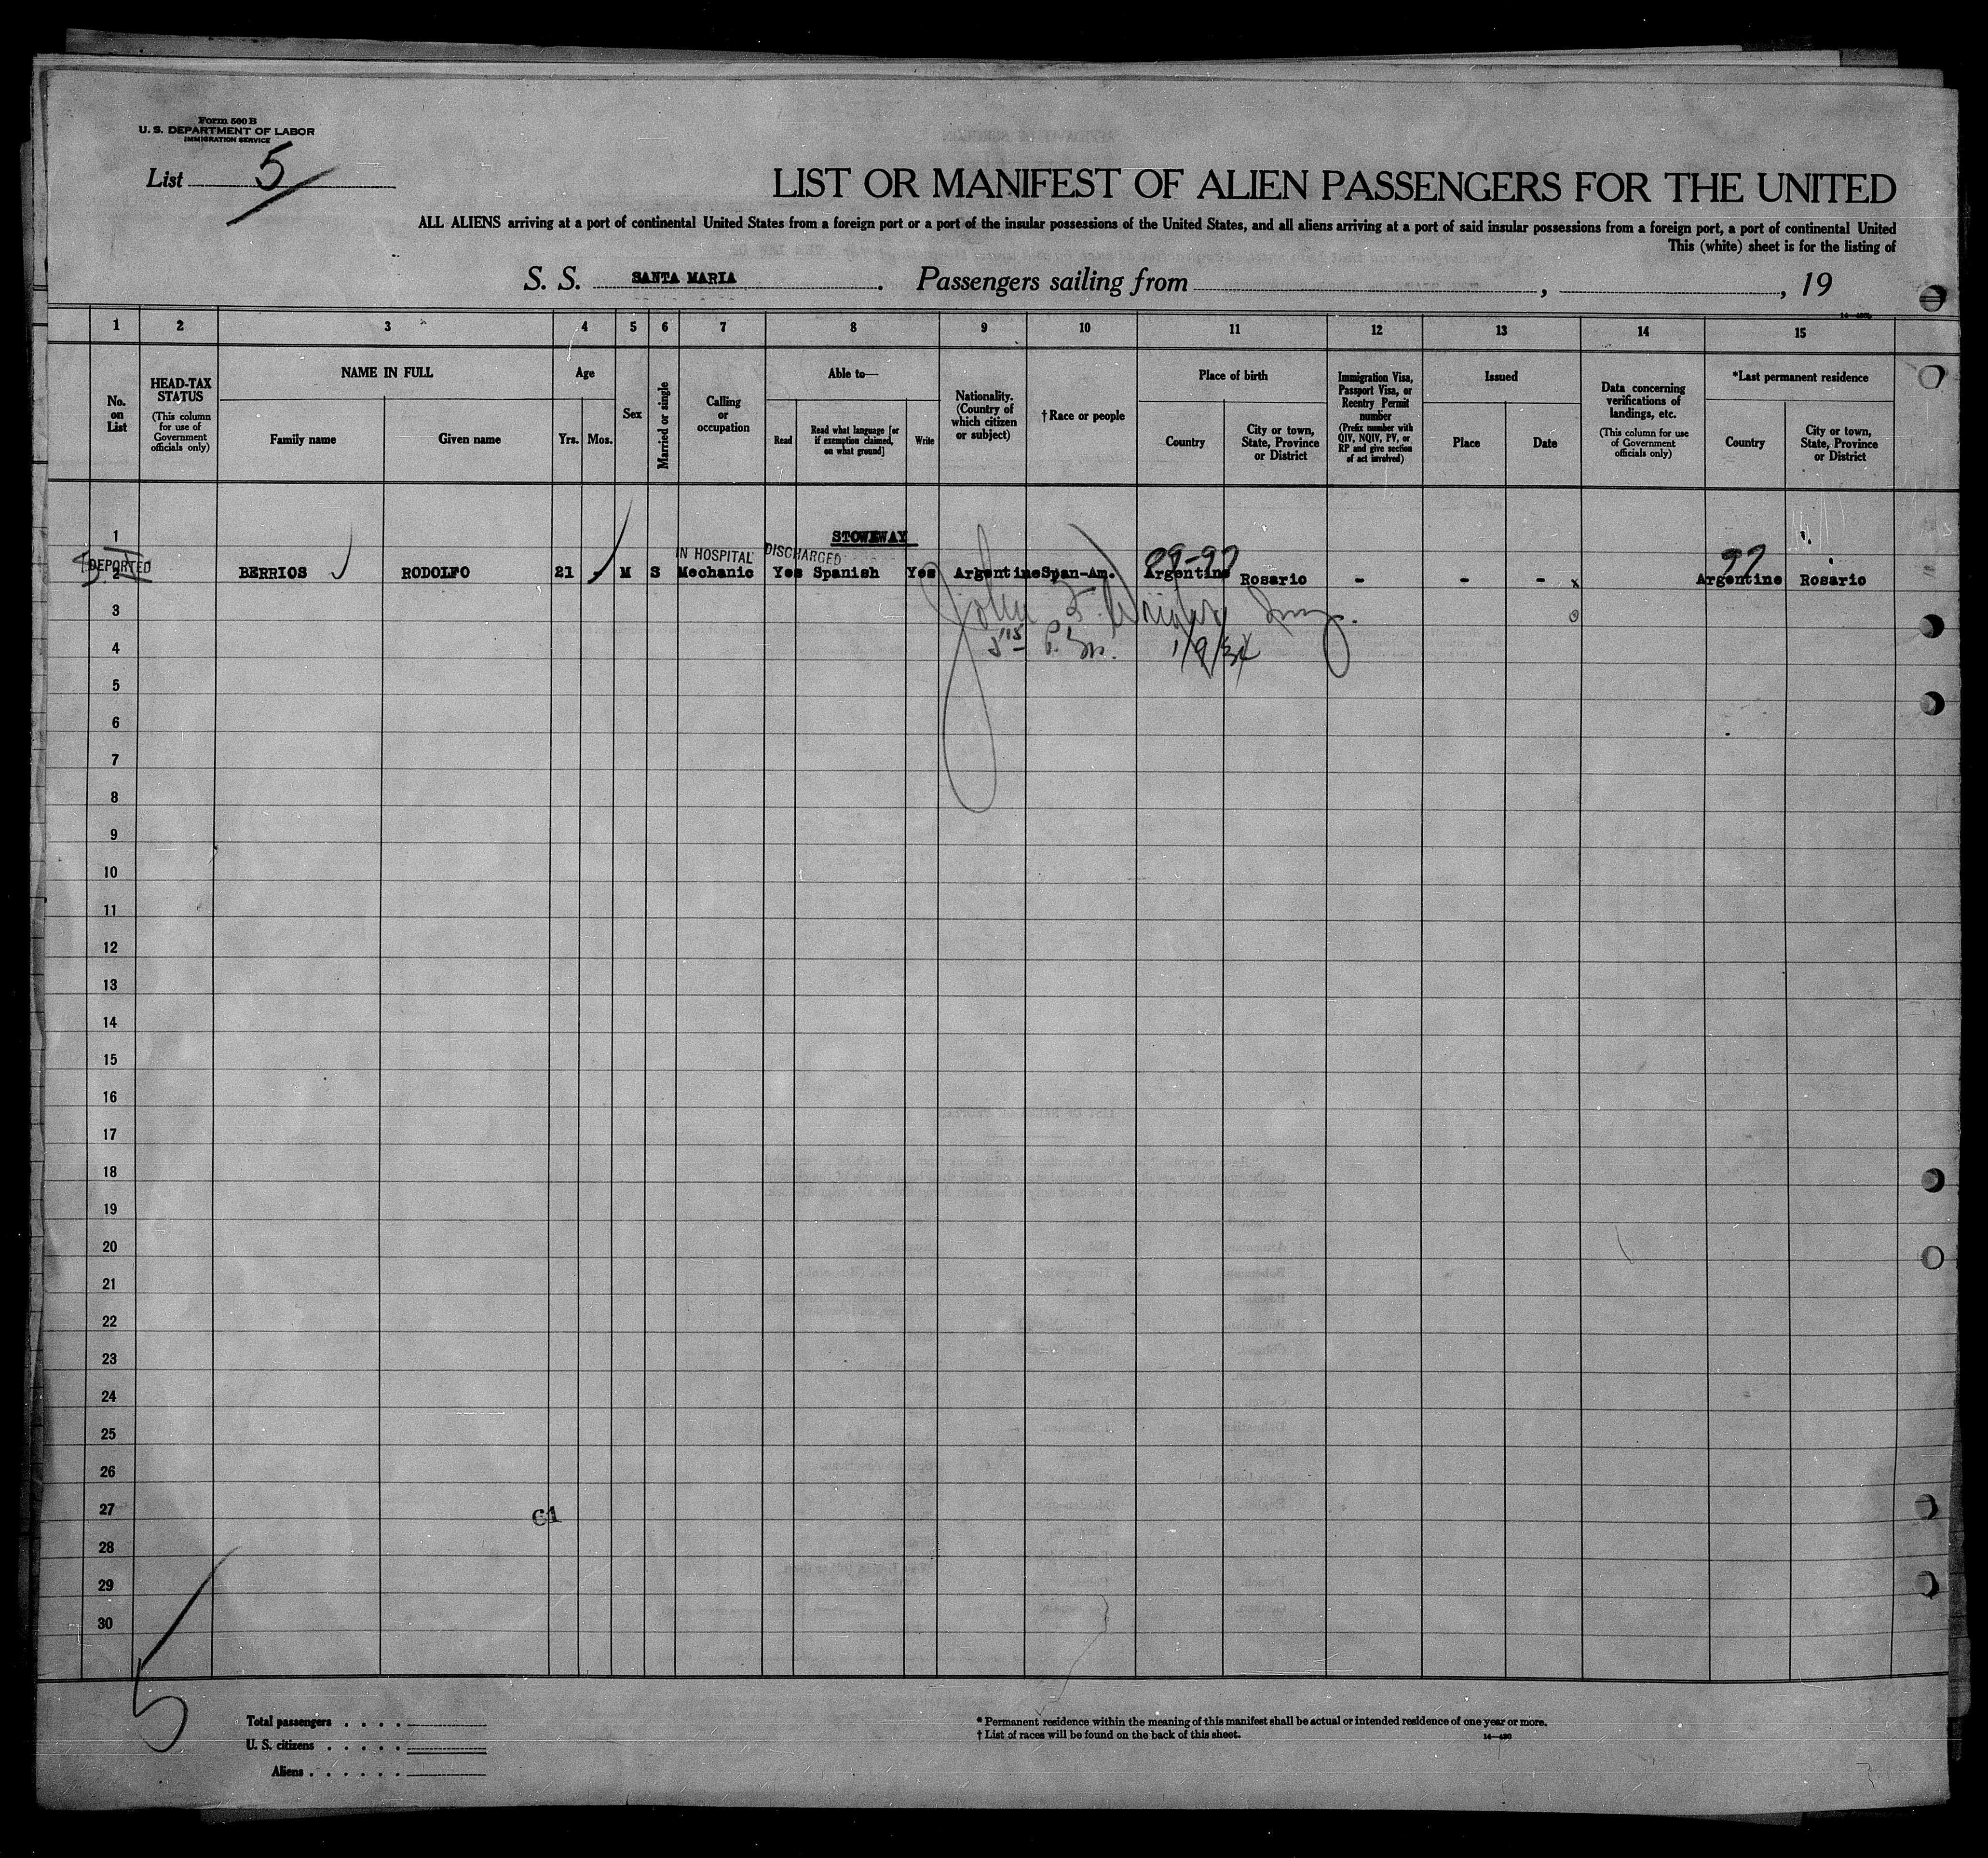 Form 500 B
U. S. DEPARTMENT OF LABOR
IMMIGRATION SERVICE
List 5
LIST OR MANIFEST OF ALIEN PASSENGERS FOR THE UNITED
ALL ALIENS arriving at a port of continental United States from a foreign port or a port of the insular possessions of the United States, and all aliens arriving at a port of said insular possessions from a foreign port, a port of continental United
This (white) sheet is for the listing of
S. S. SANTA MARIA. Passengers sailing from , , 19
1 2 3 4 5 6 7 8 9 10 11 12 13 14 15
No. on List
HEAD-TAX STATUS
(This column for use of Government officials only)
NAME IN FULL
Family name
Given name
Age
Yrs. Mos.
Sex
Married or single
Calling or occupation
Able to—
Read
Read what language [or if exemption claimed, on what ground]
Write
Nationality. (Country of which citizen or subject)
†Race or people
Place of birth
Country
City or town, State, Province or District
Immigration Visa, Passport Visa, or Reentry Permit number
(Prefix number with QIV, NQIV, PV, or RP and give section of act involved)
Issued
Place
Date
Data concerning verifications of landings, etc.
(This column for use of Government officials only)
*Last permanent residence
Country
City or town, State, Province or District
1 STOWAWAY
IN HOSPITAL DISCHARGED 09-97 97
DEPORTED
2 BERRIOS RODOLFO 21 - M S Mechanic Yes Spanish Yes Argentine Span-Am. Argentine Rosario - - - x Argentine Rosario
3 John
4 5 15 P.M. 1/9/34
5
6
7
8
9
10
11
12
13
14
15
16
17
18
19
20
21
22
23
24
25
26
27 61
28
29
30
5
Total passengers . . . .
U. S. citizens . . . . .
Aliens . . . . . .
* Permanent residence within the meaning of this manifest shall be actual or intended residence of one year or more.
† List of races will be found on the back of this sheet.
14—430